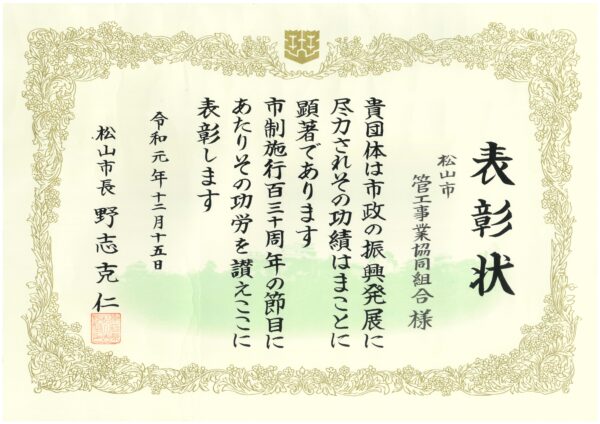 表彰状
松山市
管工事業協同組合 様
貴団体は市政の振興発展に
尽力されその功績はまことに
顕著であります
市制施行百三十周年の節目に
あたりその功労を讃えここに
表彰します
令和元年十二月十五日
松山市長 野志克仁